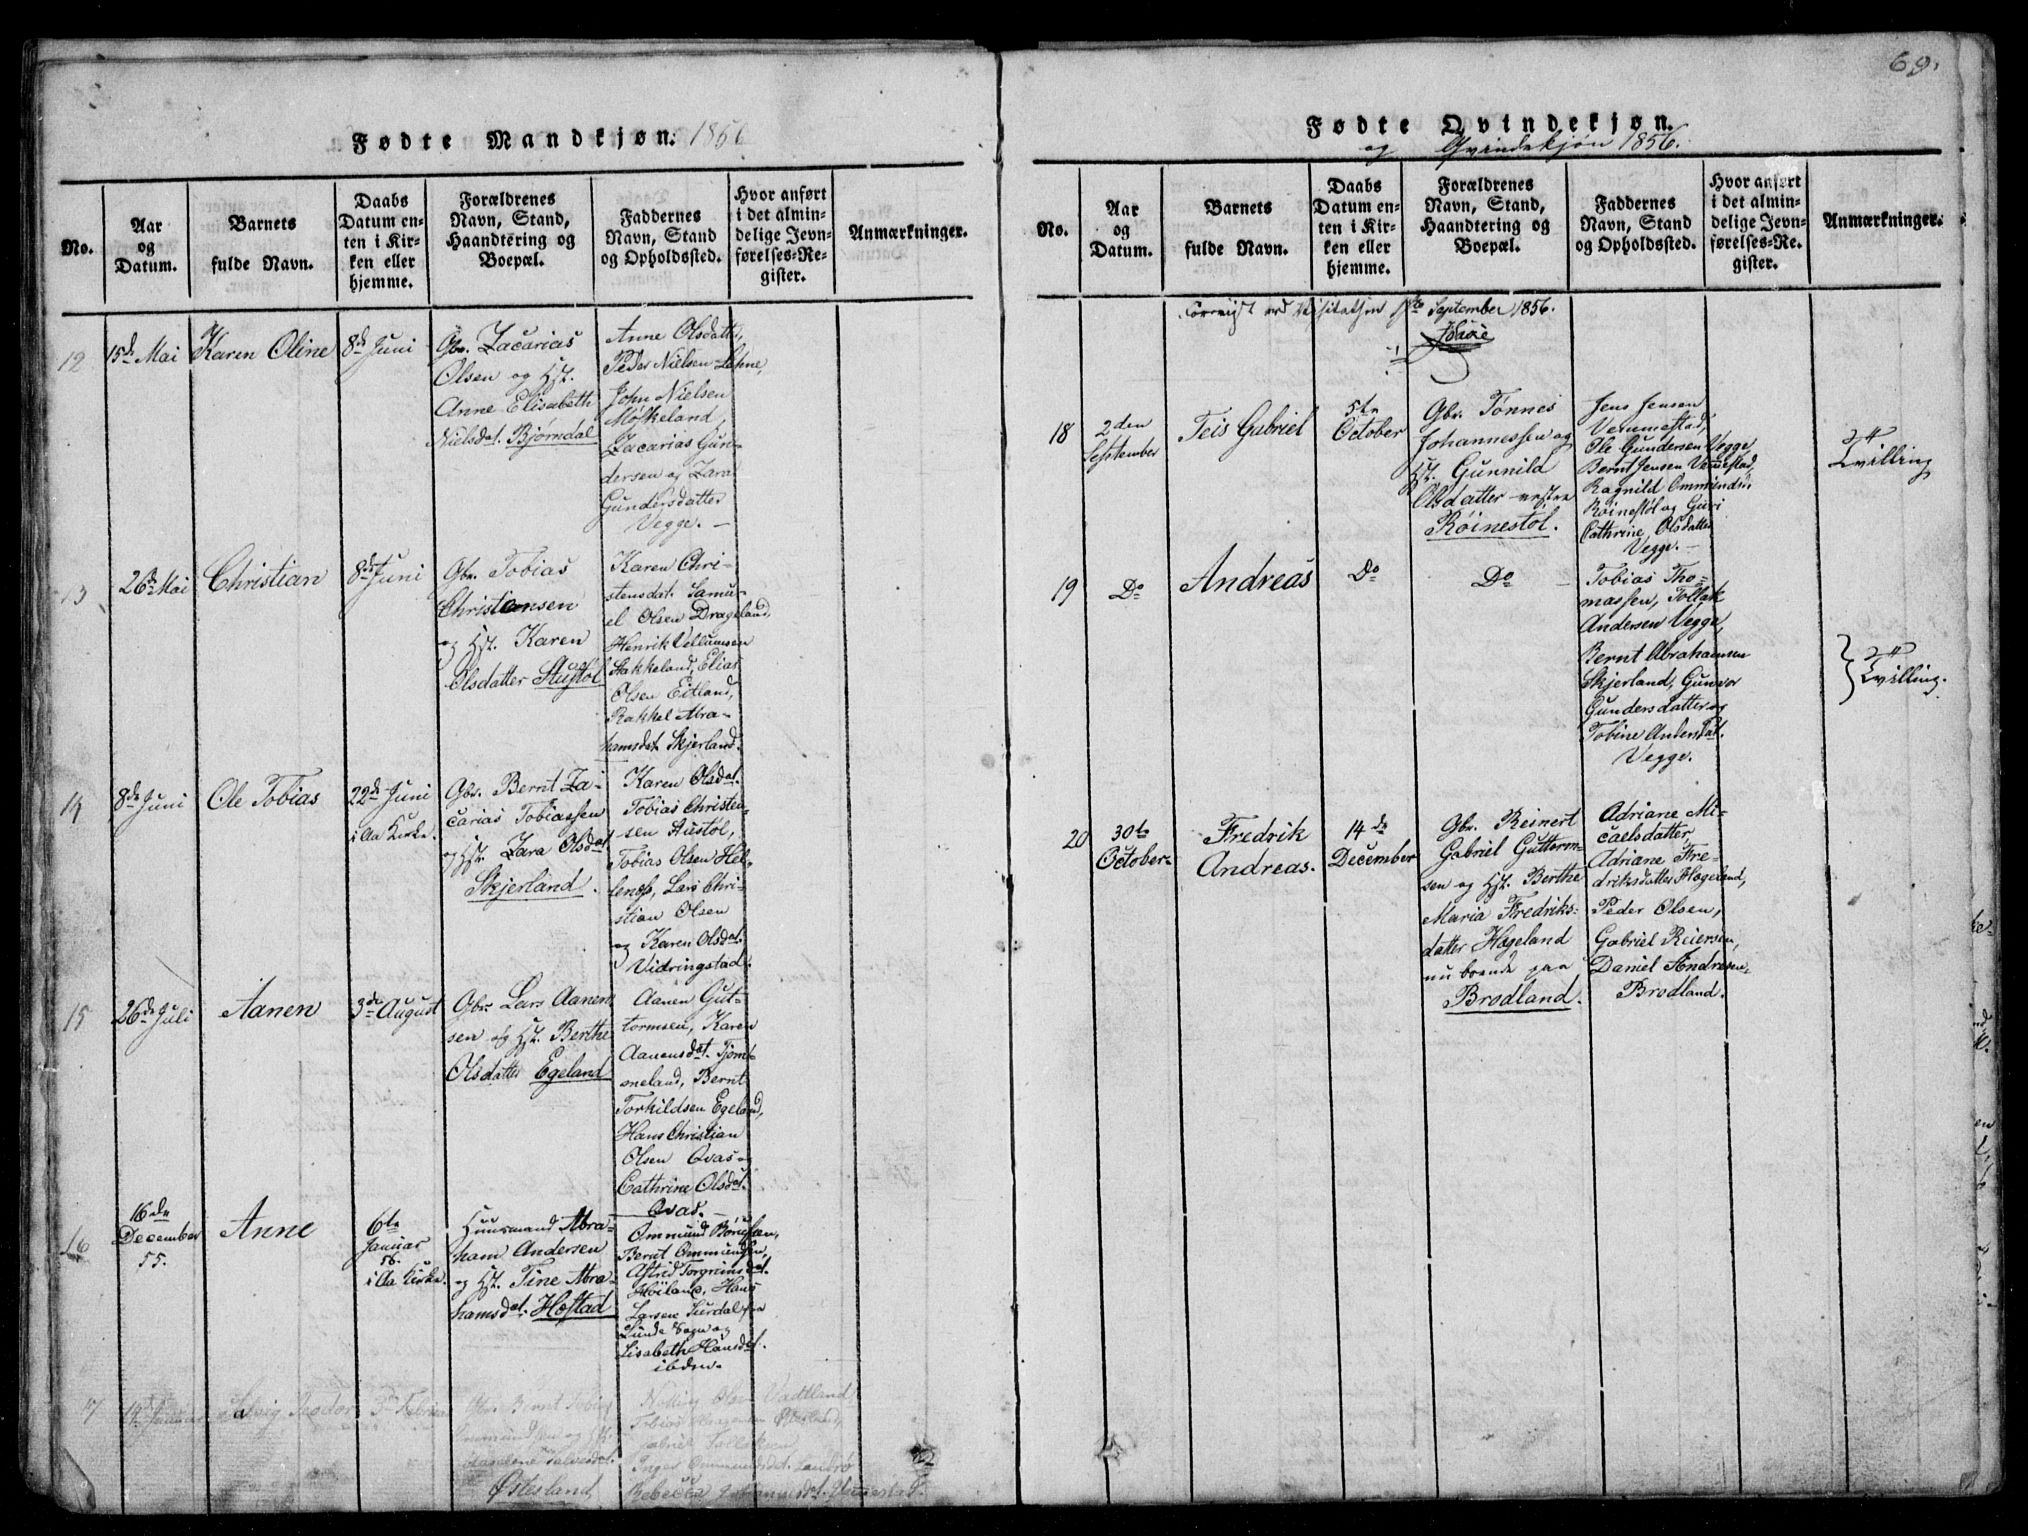 Fødte Mandkjøn. 1856
No.
Aar
og
Datum.
Barnets
fulde Navn.
Daabs
Datum en-
ten i Kir-
ken eller
hjemme.
Forældrenes
Navn, Stand,
Haandtering og
Boepæl.
Faddernes
Navn, Stand
og Opholdssted.
Hvor anført
i det almin-
delige Jevn-
førelses-Re-
gister.
Anmærkninger.
12
15de Mai
Karen Oline
8de Juni
Gbr. Zacarias
Olsen og Hst.
Anne Elisabeth
Nielsdat. Bjørndal
Anne Olsdatter,
Peder Nielsen Lehne,
John Nielsen
Møskeland,
Zacarias Gun-
dersen og Zara
Gundersdatter
Vegge. —
13
26de Mai
Christian
8de Juni
Gbr. Tobias
Christensen
og Hst. Karen
Olsdatter Austøl
Karen Chri-
stensdat. Samu-
el Olsen Drageland,
Henrik Vellumsen
Stakkeland, Elias
Olsen Eitland,
Rakkel Abra-
hamsdat. Skjerland.
14
8de Juni
Ole Tobias
22de Juni
i Aa Kirke.
Gbr. Bernt Za-
carias Tobiassen
og Hst. Zara Olsdat.
Skjerland.
Karen Olsdat.
Tobias Christen-
sen Austøl,
Tobias Olsen Hel-
Lars Chri-
stian Olsen
og Karen Olsdat.
Vidringstad.
15
26de Juli
Aanen
3de August
Gbr. Lars Aanen-
sen og Hst. Berthe
Olsdatter Egeland
Aanen Gut-
tormsen, Karen
Aanensdat. Tjøm-
eneland, Bernt
Torkildsen Egeland,
Hans Christian
Olsen Qvas og
Cathrine Olsdat.
Qvas. —
16
16de
December
55.
Anne
6te
Januar
56.
i Aa Kirke.
Huusmand Abra-
ham Andersen
og Hst. Tine Abra-
hamsdat. Høstad
Ommund
Bernt Ommundsen,
Astrid Torgrimsdat.
Høiland, Hans
Larsen Surdal fra
Lunde Sogn og
Lisabeth Hansdat.
ibdm.
17
Januar
Gbr. Bernt Tobias
Ommundsen og Hst.
Østesland
Olsen Vadtland
Tobias
Gabriel Tollaksen
Inger Ommundsdat.
Rebecca
69.
Fødte Qvindekjøn.
og Qvindekjøn 1856.
No.
Aar
og
Datum.
Barnets
fulde Navn.
Daabs
Datum en-
ten i Kir-
ken eller
hjemme.
Forældrenes
Navn, Stand,
Haandtering og
Boepæl.
Faddernes
Navn, Stand
og Opholdssted.
Hvor anført
i det almin-
delige Jevn-
førelses-Re-
gister.
Anmærkninger.
Foreviist ved Visitatsen September 1856.
18
2den
September
Teis Gabriel
5te
October
Gbr. Tønnes
Johannessen og
Hst. Gunnild
Olsdatter vestre
Røinestøl.
Jens Jensen
Vemmestad,
Ole Gundersen Vegge,
Bernt Jensen Vemestad,
Ragnild Ommundsd.
Røinestøl og Guri
Cathrine Olsdatter
Vegge. —
Tvilling
19
Do
Andreas
Do
Do
Tobias Tho-
massen, Tollak
Andersen Vegge,
Bernt Abrahamsen
Skjerland, Gunvor
Gundersdatter og
Tobine Andersdat.
Vegge.
Tvilling.
20
30te
October
Fredrik
Andreas.
14de
December
Gbr. Reinert
Gabriel Guttorm-
sen og Hst. Berthe
Maria Fredriks-
datter Hægeland
nu boende paa
Brodland.
Adriane Mi-
caelsdatter,
Adriane Fre-
driksdatter Hægeland,
Peder Olsen,
Gabriel Reiersen,
Daniel Andresen
Brodland.